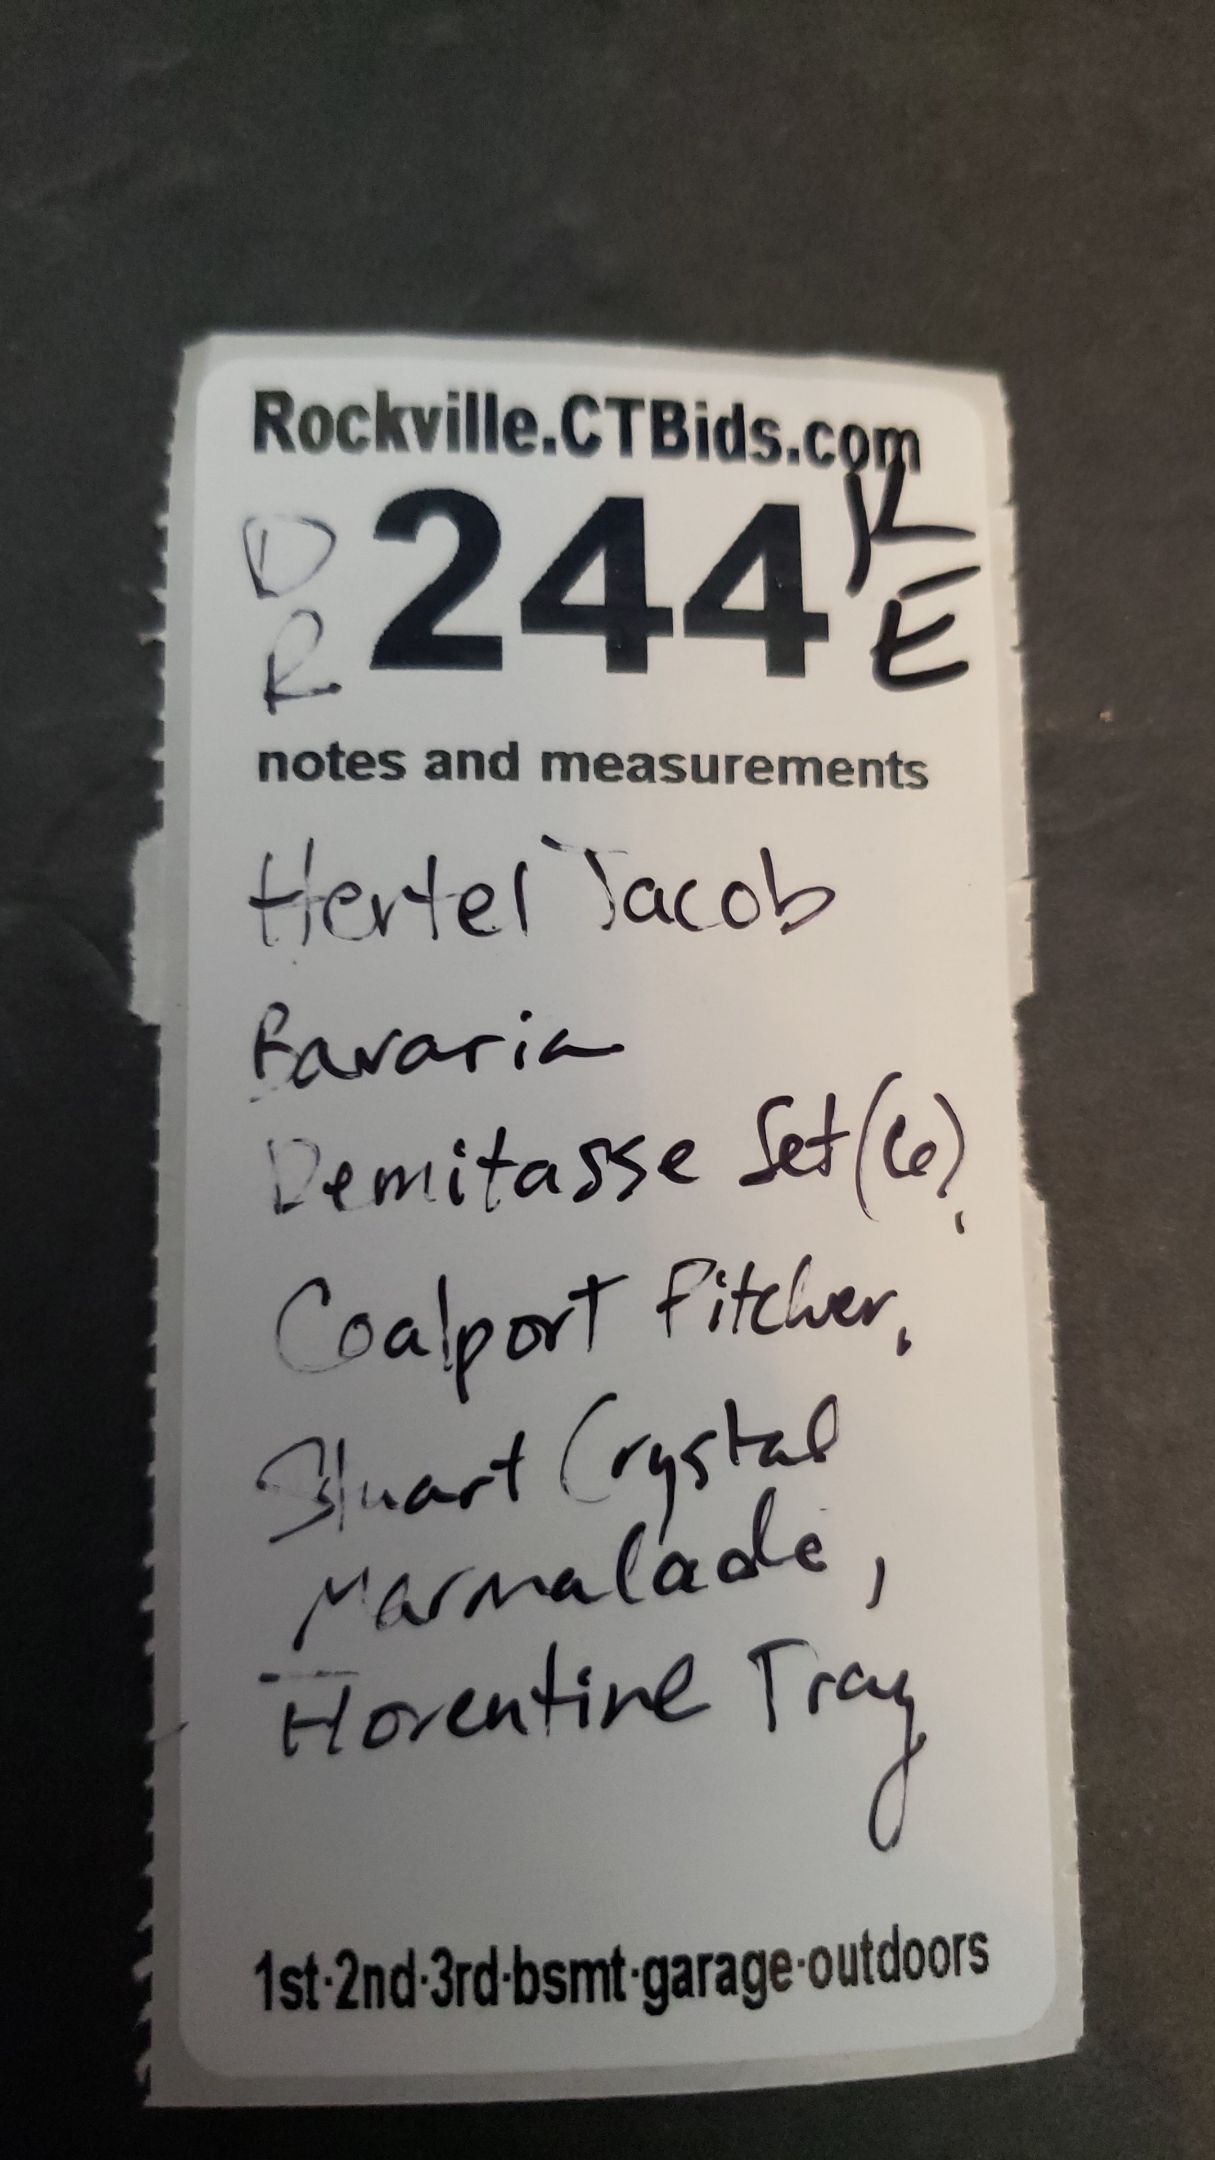 Rockville.CTBids.com
DR 244 KE
notes and measurements
Hertel Jacob
Bavaria
Demitasse Set (6),
Coalport Pitcher,
Stuart Crystal
Marmalade,
Florentine Tray
1st·2nd·3rd·bsmt·garage·outdoors